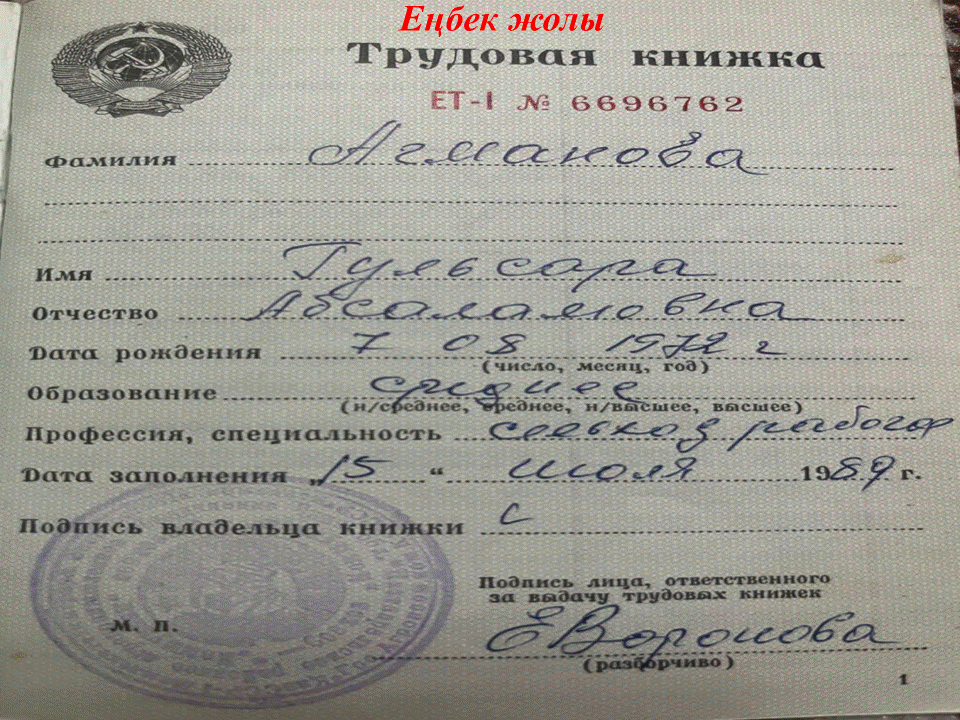 Еңбек жолы
Трудовая книжка
ЕТ-I № 6696762
Фамилия Агманова
Имя Гульсара
Отчество Абсаламовна
Дата рождения 7 08 1972 г
(число, месяц, год)
Образование среднее
(н/среднее, среднее, н/высшее, высшее)
Профессия, специальность сельхоз рабочая
Дата заполнения „15“ июля 1989 г.
Подпись владельца книжки
Подпись лица, ответственного
за выдачу трудовых книжек
М. П.
ЕВоронова
(разборчиво)
1